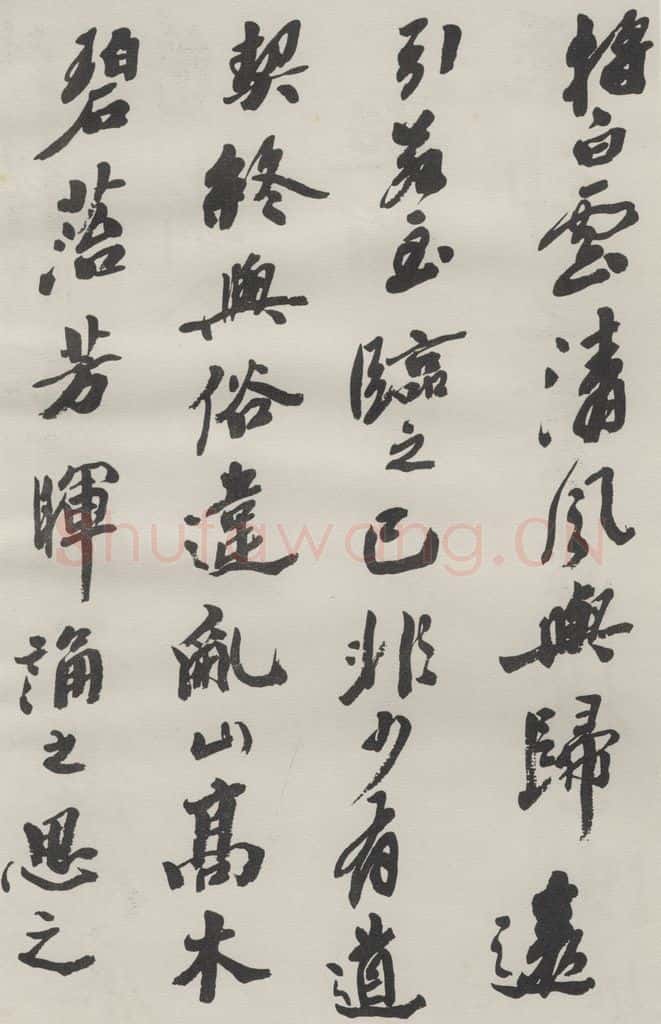 將白雲清風與歸遠
引若至臨之已非少有道
契終與俗違亂山髙木
碧菭芳暉誦之思之
Shufawang.CN